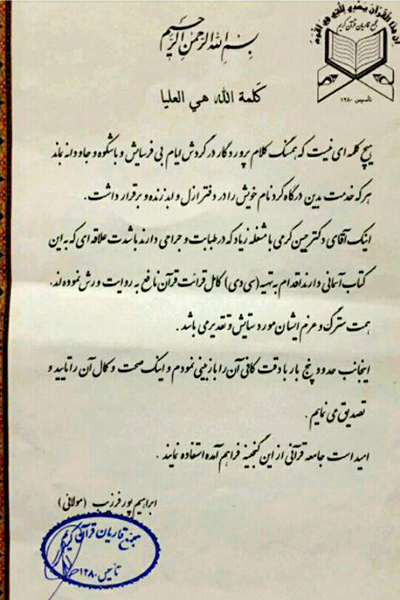 ان هذا القرآن یهدی للتی هی اقوم
مجمع قاریان قرآن کریم
تأسیس ۱۲۸۰
بسم الله الرحمن الرحیم
كلمة الله هي العليا
هیچ کلمه ای نیست که همسنگ کلام پروردگار در گردش ایام بی فرسایش و باشکوه و جاودانه بماند
هر که خدمت بدین درگاه کرد نام خویش را در دفتر ازل و ابد زنده و برقرار داشت.
اینک آقای دکتر حسن کرمی با مشغله زیاد که در طبابت و جراحی دارند با شدت علاقه ای که به این
کتاب آسمانی دارند اقدام به تهیه (سی دی) کامل قرائت قرآن نافع به روایت ورش نموده اند.
همت سترگ و عزم ایشان مورد ستایش و تقدیر می باشد.
اینجانب حدود پنج بار با دقت کافی آن را بازبینی نمودم و اینک صحت و کمال آن را تایید و
تصدیق می نمایم.
امید است جامعه قرآنی از این گنجینه فراهم آمده استفاده نمایند.
ابراهیم پور فرزیب (مولائی)
مجمع قاریان قرآن کریم
تأسیس ۱۲۸۰